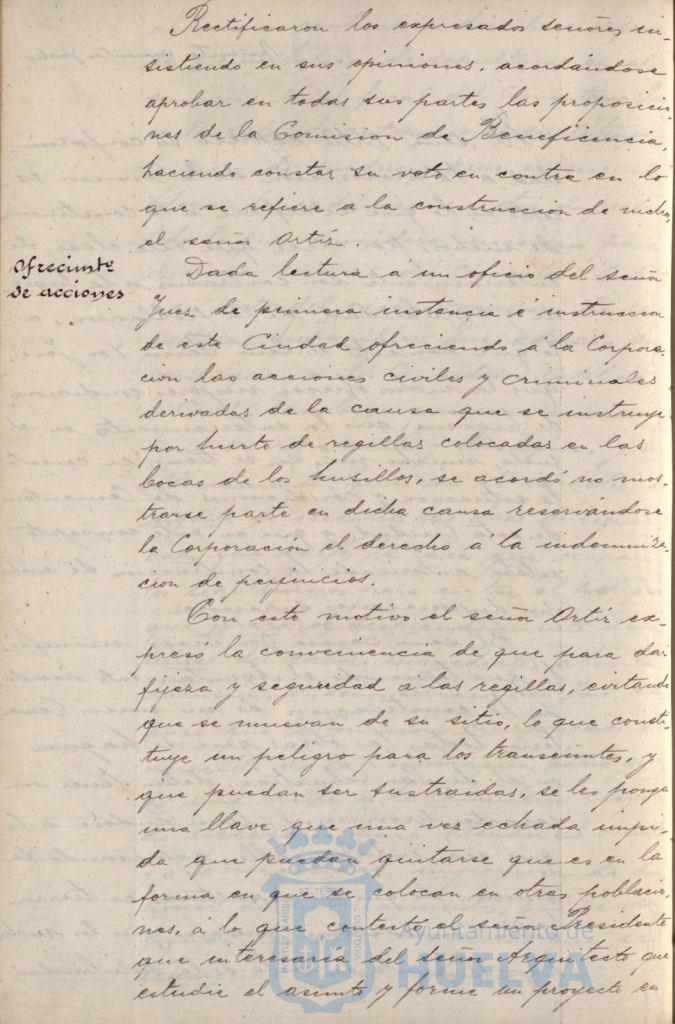 Rectificaron los expresados señores in-
sistiendo en sus opiniones, acordándose
aprobar en todas sus partes las proposicio-
nes de la Comision de Beneficencia,
haciendo constar su voto en contra en lo
que se refiere a la construccion de nichos,
el señor Ortíz.
Ofrecimto
de acciones
Dada lectura á un oficio del señor
Juez de primera instancia é instruccion
de esta Ciudad ofreciendo á la Corpora-
cion las acciones civiles y criminales
derivadas de la causa que se instruye
por hurto de regillas colocadas en las
bocas de los husillos, se acordó no mos-
trarse parte en dicha causa reservándose
la Corporación el derecho á la indemniza-
cion de perjuicios.
Con este motivo el señor Ortíz ex-
presó la conveniencia de que para dar
fijeza y seguridad á las regillas, evitando
que se muevan de su sitio, lo que consti-
tuye un peligro para los transeuntes, y
que puedan ser sustraidas, se les ponga
una llave que una vez echada impi-
da que puedan quitarse que es en la
forma en que se colocan en otras poblacio-
nes, á lo que contestó el señor Presidente
que interesaría del señor Arquitecto que
estudie el asunto y forme un proyecto en
Ayuntamiento de
HUELVA